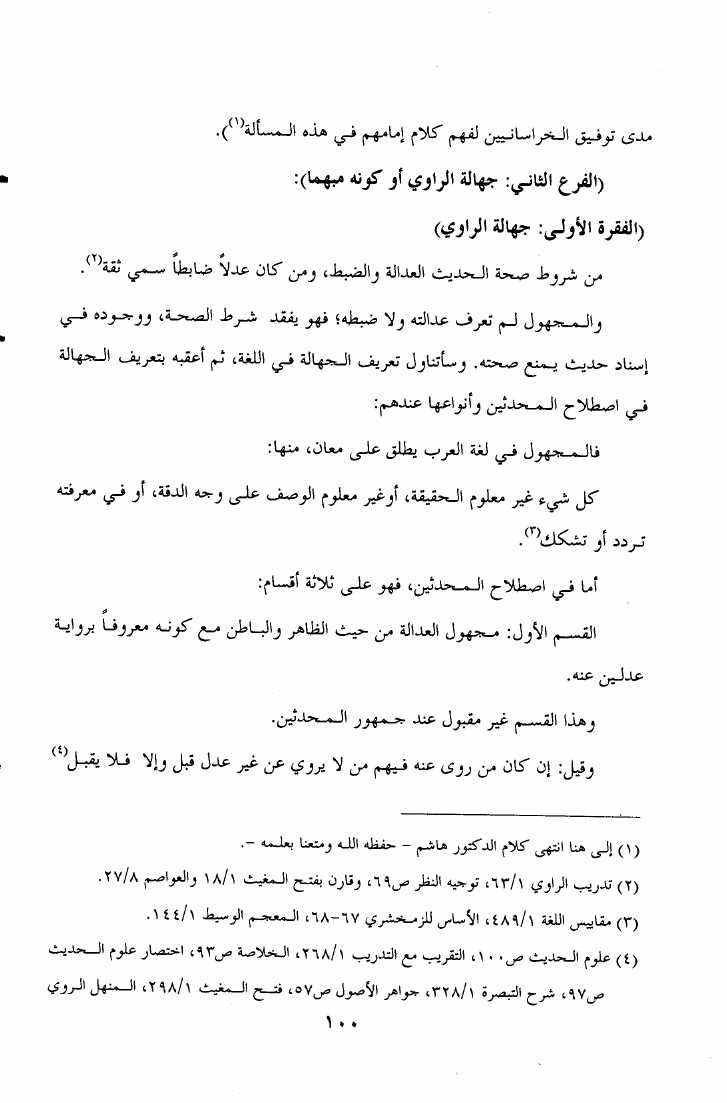 مدى توفيق الخراسانيين لفهم كلام إمامهم في هذه المسألة(١)).
(الفرع الثاني: جهالة الراوي أو كونه مبهما):
(الفقرة الأولى: جهالة الراوي)
من شروط صحة الحديث العدالة والضبط، ومن كان عدلاً ضابطاً سمي ثقة(٢).
والمجهول لم تعرف عدالته ولا ضبطه؛ فهو يفقد شرط الصحة، ووجوده في
إسناد حديث يمنع صحته. وسأتناول تعريف الجهالة في اللغة، ثم أعقبه بتعريف الجهالة
في اصطلاح المحدثين وأنواعها عندهم:
فالمجهول في لغة العرب يطلق على معان، منها:
كل شيء غير معلوم الحقيقة، أوغير معلوم الوصف على وجه الدقة، أو في معرفته
تردد أو تشكك(٣).
أما في اصطلاح المحدثين، فهو على ثلاثة أقسام:
القسم الأول: مجهول العدالة من حيث الظاهر والباطن مع كونه معروفاً برواية
عدلين عنه.
وهذا القسم غير مقبول عند جمهور المحدثين.
وقيل: إن كان من روى عنه فيهم من لا يروي عن غير عدل قبل وإلا فلا يقبل(٤)
(١) إلى هنا انتهى كلام الدكتور هاشم - حفظه الله ومتعنا بعلمه -.
(٢) تدريب الراوي ٦٣/١، توجيه النظر ص٦٩، وقارن بفتح المغيث ١٨/١ والعواصم ٢٧/٨.
(٣) مقاييس اللغة ٤٨٩/١، الأساس للزمخشري ٦٧-٦٨، المعجم الوسيط ١٤٤/١.
(٤) علوم الحديث ص١٠٠، التقريب مع التدريب ٢٦٨/١، الخلاصة ص٩٣، اختصار علوم الحديث
ص٩٧، شرح التبصرة ٣٢٨/١، جواهر الأصول ص٥٧، فتح المغيث ٢٩٨/١، المنهل الروي
١٠٠